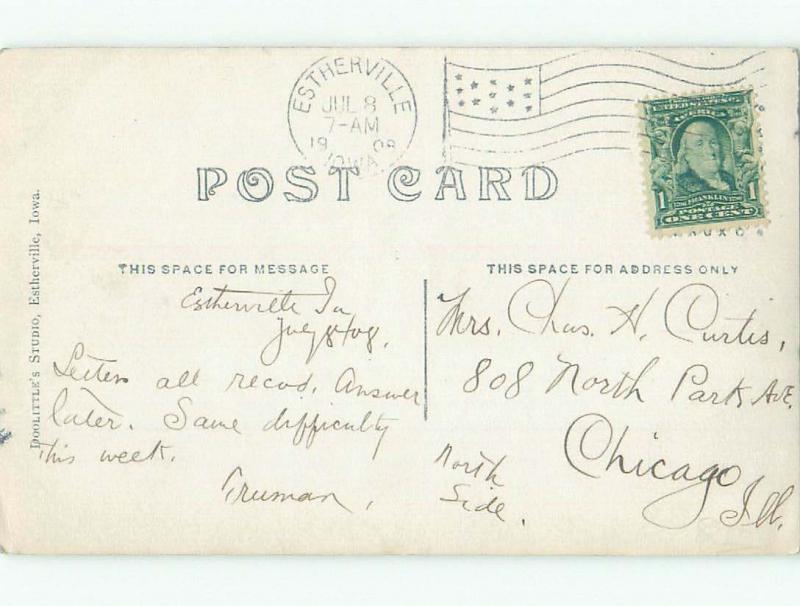 ESTHERVILLE
JUL 8
7-AM
1908
IOWA
POST CARD
UNITED STATES OF AMERICA
1 FRANKLIN 1
POSTAGE
ONE CENT
DOOLITTLE'S STUDIO, Estherville, Iowa.
THIS SPACE FOR MESSAGE
Estherville Ia
July 8/08.
Letters all recvd. Answer
later. Same difficulty
this week.
Truman,
THIS SPACE FOR ADDRESS ONLY
Mrs. Chas. H. Curtis,
808 North Park Ave.
Chicago
Ill.
North
Side.